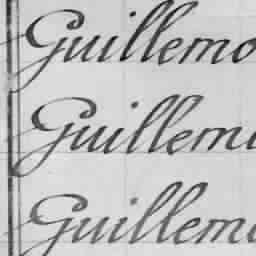 Guillemo
Guillemo
Guillemo